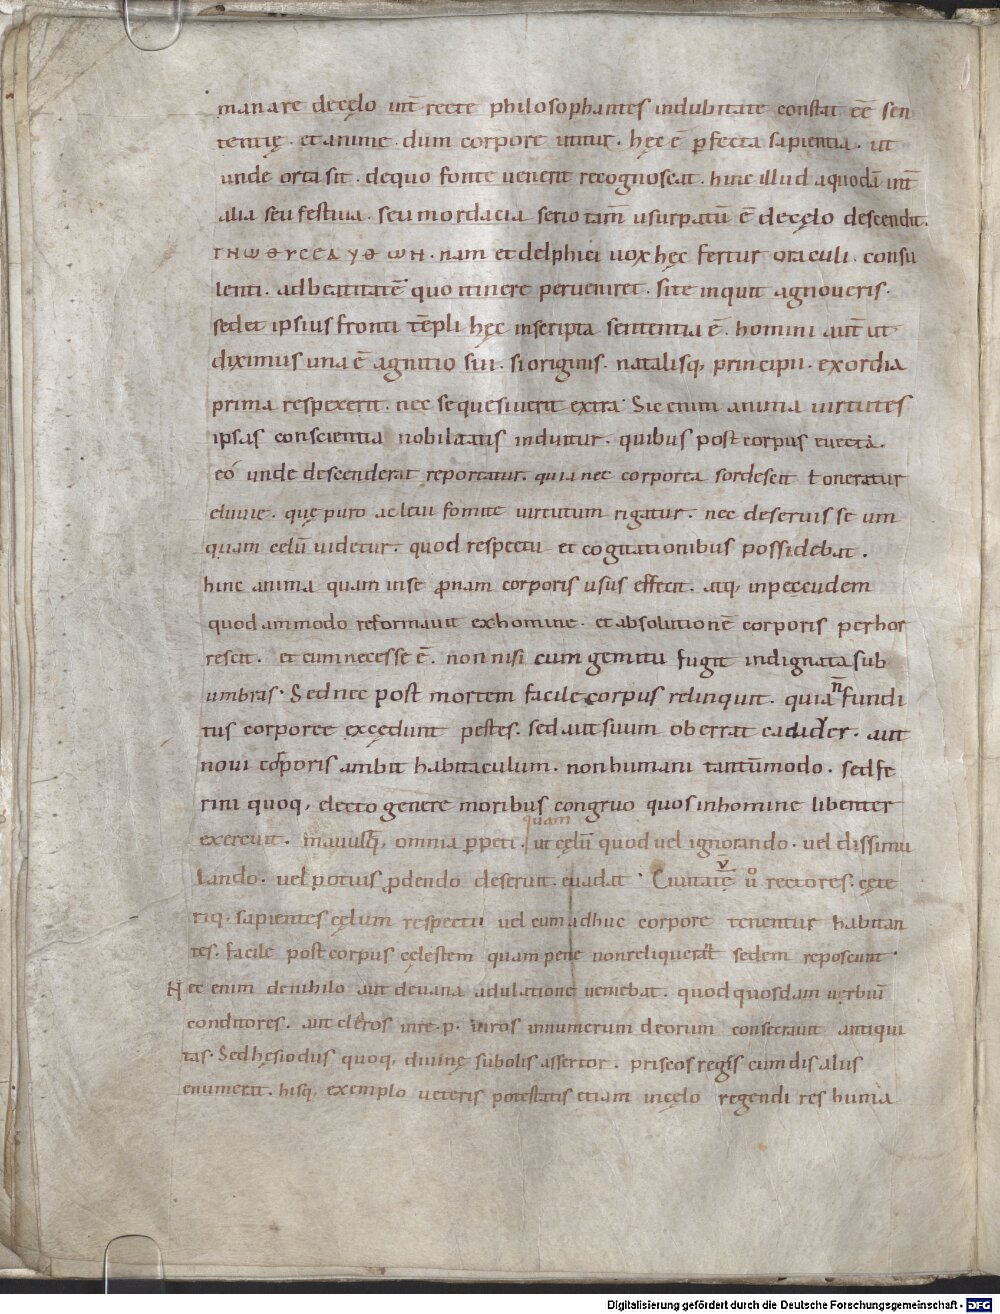 manare decęlo int̄ recte philosophantes indubitate constat eē sen
tentię . et anime . dum corpore utitur . hęc ē p̱fecta sapientia . ut
unde orta sit . dequo fonte uenerit recognoscat . hinc illud aquodā int̄
alia seu festiua . seu mordacia serio tam̄ usurpatū ē decęlo descendit .
ΓΗѠΘΥCЄΑΥΘѠΗ . nam et delphici uox hęc fertur oraculi . consu
lenti . adbeatitatē quo itinere perueniret . site inquit agnoueris .
sedet ipsius fronti tēpli hęc inscripta sententia ē . homini aut̄ ut
diximus una ē agnitio sui . si originis . natalisq, principii . exordia
prima respexerit . nec se quesiuerit extra . Sic enim anima uirtutes
ipsas conscientia nobilitatis induitur . quibus post corpus euecta .
eó unde descenderat reportatur . quia nec corporea sordescit ł oneratur
eluuie . quę puro ac leui fomite uirtutum rigatur . nec deseruisse um
quam celū uidetur . quod respectu et cogitationibus possidebat .
hinc anima quam inse p̱nam corporis usus effecit . atq, inpecudem
quodammodo reformauit exhomine . et absolutionē corporis perhor
rescit . et cum necesse ē . non nisi cum gemitu fugit indignata sub
umbras . Sed nec post mortem facile corpus relinquit . quia n̄ fundi
tus corporee excędunt pestes . sed aut suum oberrat cadauer . aut
noui corporis ambit habitaculum . non humani tantūmodo . sed fe
rini quoq, electo genere moribus congruo quos inhomine libenter
exercuit . mauultq, omnia p̱peti . quam ut cęlū quod uel ignorando . uel dissimu
lando . uel potius p̱dendo deseruit . euadat . Ciuitatū ū rectores . cęte
riq, sapientes cęlum respectu uel cum adhuc corpore tenentur habitan
tes . facile post corpus cęlestem quam pene nonreliquerant sedem reposcunt .
Nec enim denihilo aut deuana adulatione ueniebat . quod quosdam urbiū
conditores . aut claros inre . p . uiros innumerum deorum consecrauit antiqui
tas . Sed hęsiodus quoq, diuinę subolis assertor . priscos reges cum dis alus
enumerat . hisq, exemplo ueteris potestatis etiam incęlo regendi res humā
Digitalisierung gefördert durch die Deutsche Forschungsgemeinschaft - DFG